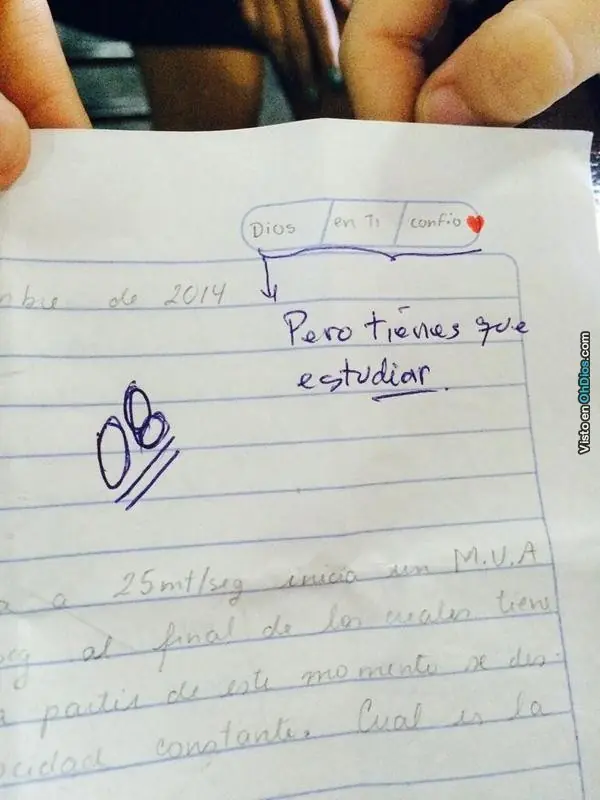 Dios / en Ti / confio
de 2014
Pero tiénes que
estudiar.
08
a 25mt/seg inicia un M.V.A
seg al final de los cuales tiene
a partir de este momento se des-
constante. Cual es la
Visto en OhDios.com